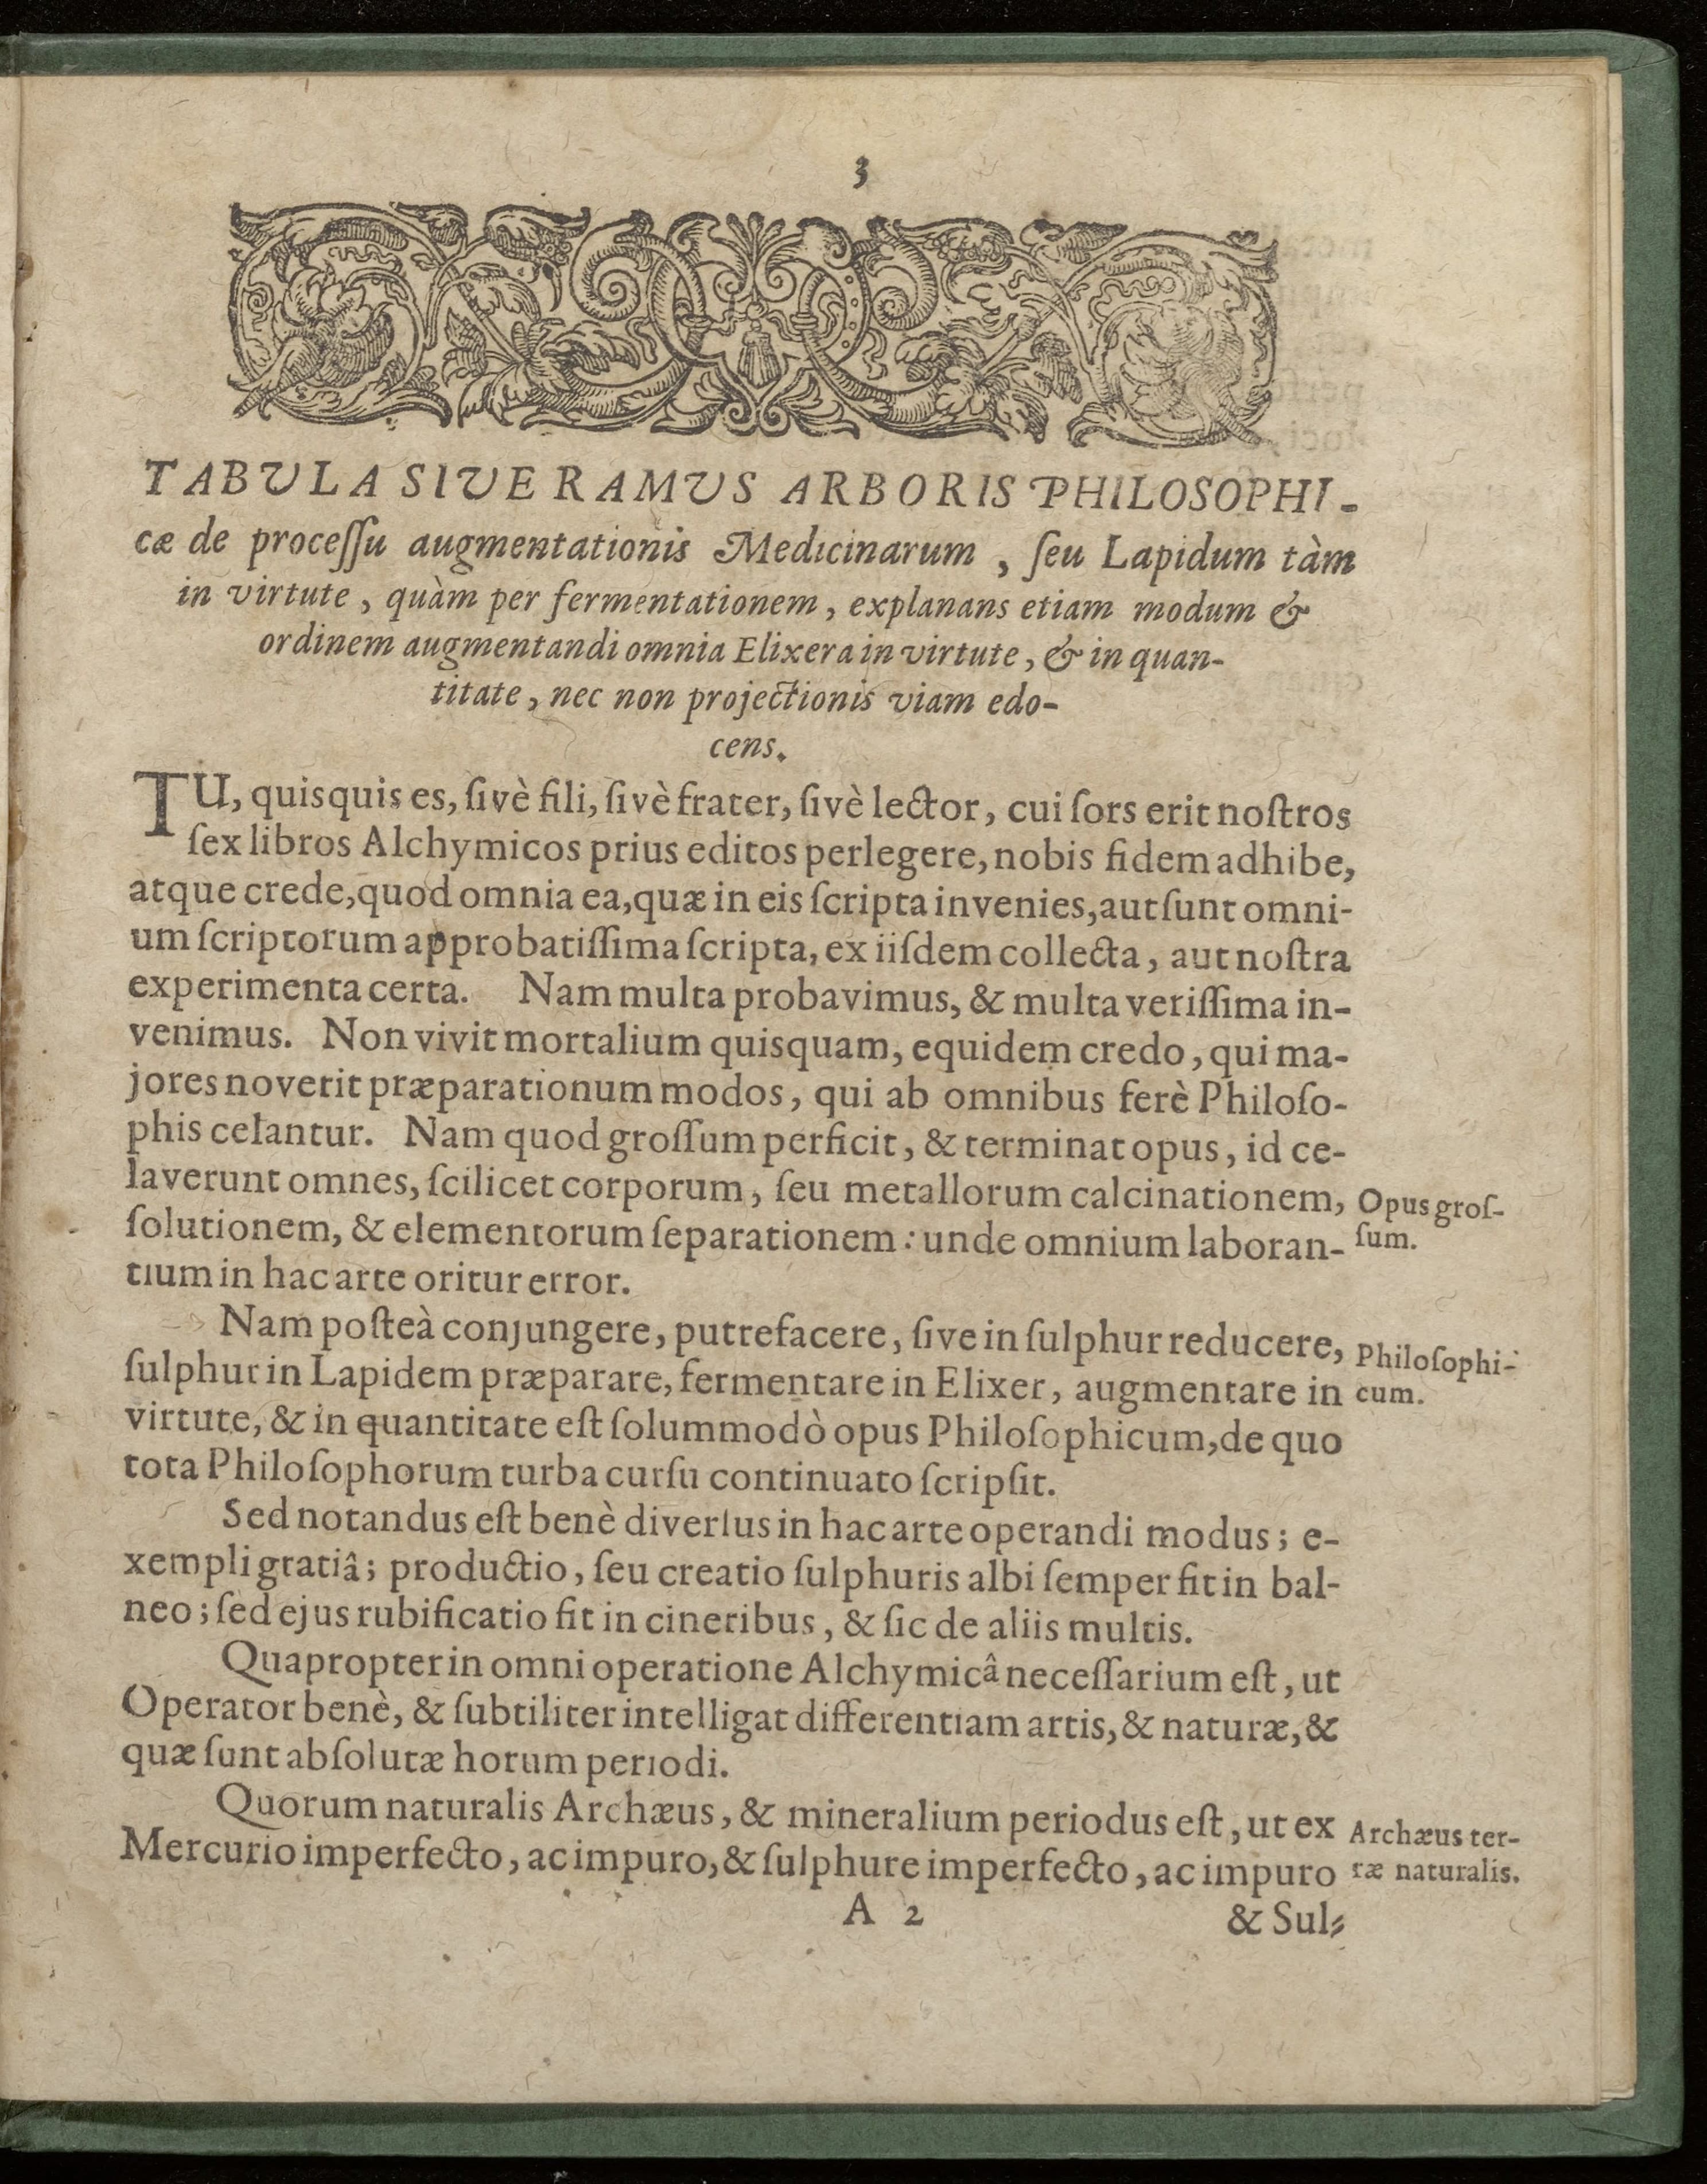 3
TABVLA SIVE RAMVS ARBORIS PHILOSOPHI-
cæ de proceſſu augmentationis Medicinarum, ſeu Lapidum tàm
in virtute, quàm per fermentationem, explanans etiam modum &
ordinem augmentandi omnia Elixera in virtute, & in quan-
titate, nec non projectionis viam edo-
cens.
TU, quisquis es, ſivè fili, ſivè frater, ſivè lector, cui ſors erit noſtros
ſex libros Alchymicos prius editos perlegere, nobis fidem adhibe,
atque crede, quod omnia ea, quæ in eis ſcripta invenies, aut ſunt omni-
um ſcriptorum approbatiſſima ſcripta, ex iiſdem collecta, aut noſtra
experimenta certa. Nam multa probavimus, & multa veriſſima in-
venimus. Non vivit mortalium quisquam, equidem credo, qui ma-
jores noverit præparationum modos, qui ab omnibus ferè Philoſo-
phis celantur. Nam quod groſſum perficit, & terminat opus, id ce-
laverunt omnes, ſcilicet corporum, ſeu metallorum calcinationem,
Opus groſ-
ſolutionem, & elementorum ſeparationem: unde omnium laboran-
ſum.
tium in hac arte oritur error.
Nam poſteà conjungere, putrefacere, ſive in ſulphur reducere,
Philoſophi-
ſulphur in Lapidem præparare, fermentare in Elixer, augmentare in
cum.
virtute, & in quantitate eſt ſolummodò opus Philoſophicum, de quo
tota Philoſophorum turba curſu continuato ſcripſit.
Sed notandus eſt benè diverſus in hac arte operandi modus; e-
xempli gratiâ; productio, ſeu creatio ſulphuris albi ſemper fit in bal-
neo; ſed ejus rubificatio fit in cineribus, & ſic de aliis multis.
Quapropter in omni operatione Alchymicâ neceſſarium eſt, ut
Operator benè, & ſubtiliter intelligat differentiam artis, & naturæ, &
quæ ſunt abſolutæ horum periodi.
Quorum naturalis Archæus, & mineralium periodus eſt, ut ex
Archæus ter-
Mercurio imperfecto, ac impuro, & ſulphure imperfecto, ac impuro
ræ naturalis.
A 2
& Sul-